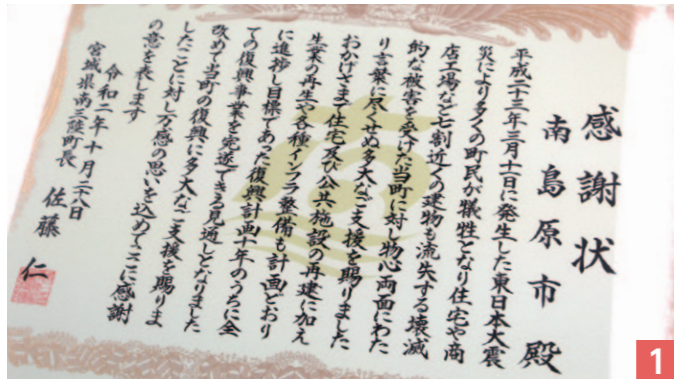 感謝状
南島原市 殿
平成二十三年三月十一日に発生した東日本大震
災により多くの町民が犠牲となり住宅や商
店工場など七割近くの建物も流失する壊滅
的な被害を受けた当町に対し物心両面にわた
り言葉に尽くせぬ多大なご支援を賜りました
おかげさまで住宅及び公共施設の再建に加え
生業の再生や各種インフラ整備も計画どおり
に進捗し目標であった復興計画十年のうちに全
ての復興事業を完遂できる見通しとなりました
改めて当町の復興に多大なご支援を賜りま
したことに対し万感の思いを込めてここに感謝
の意を表します
令和二年十月二八日
宮城県南三陸町長 佐藤 仁
1